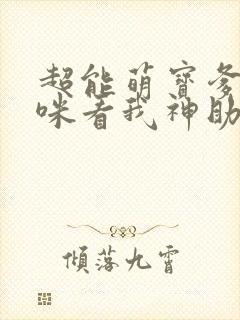 超能萌寶爹
咪看我神助
傾落九霄